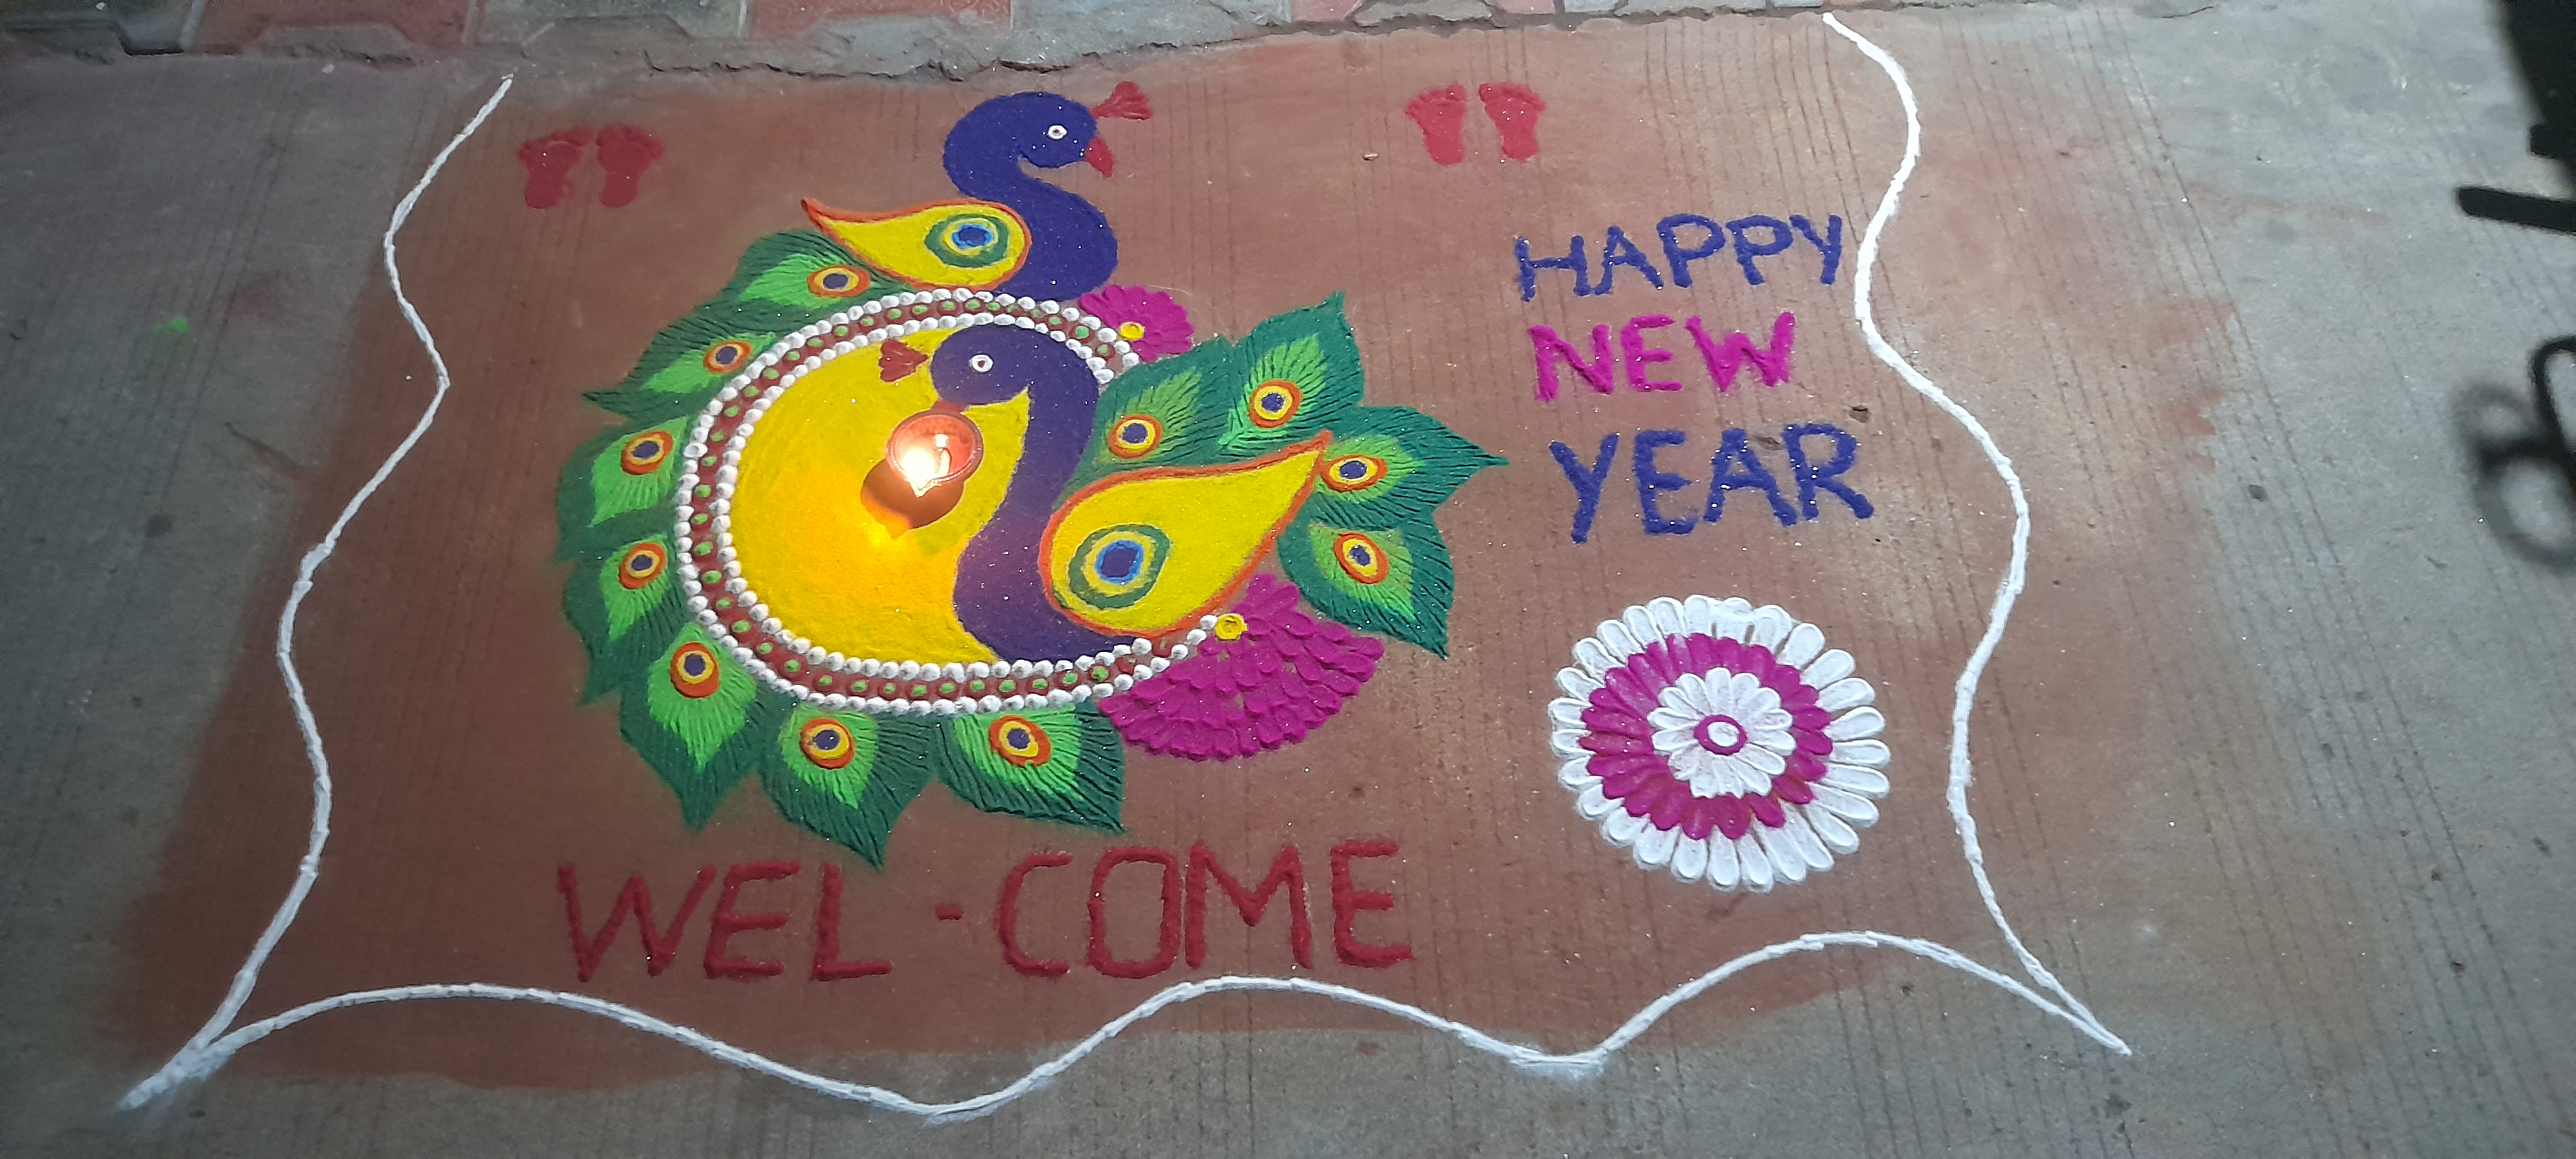 HAPPY
NEW
YEAR
WEL-COME